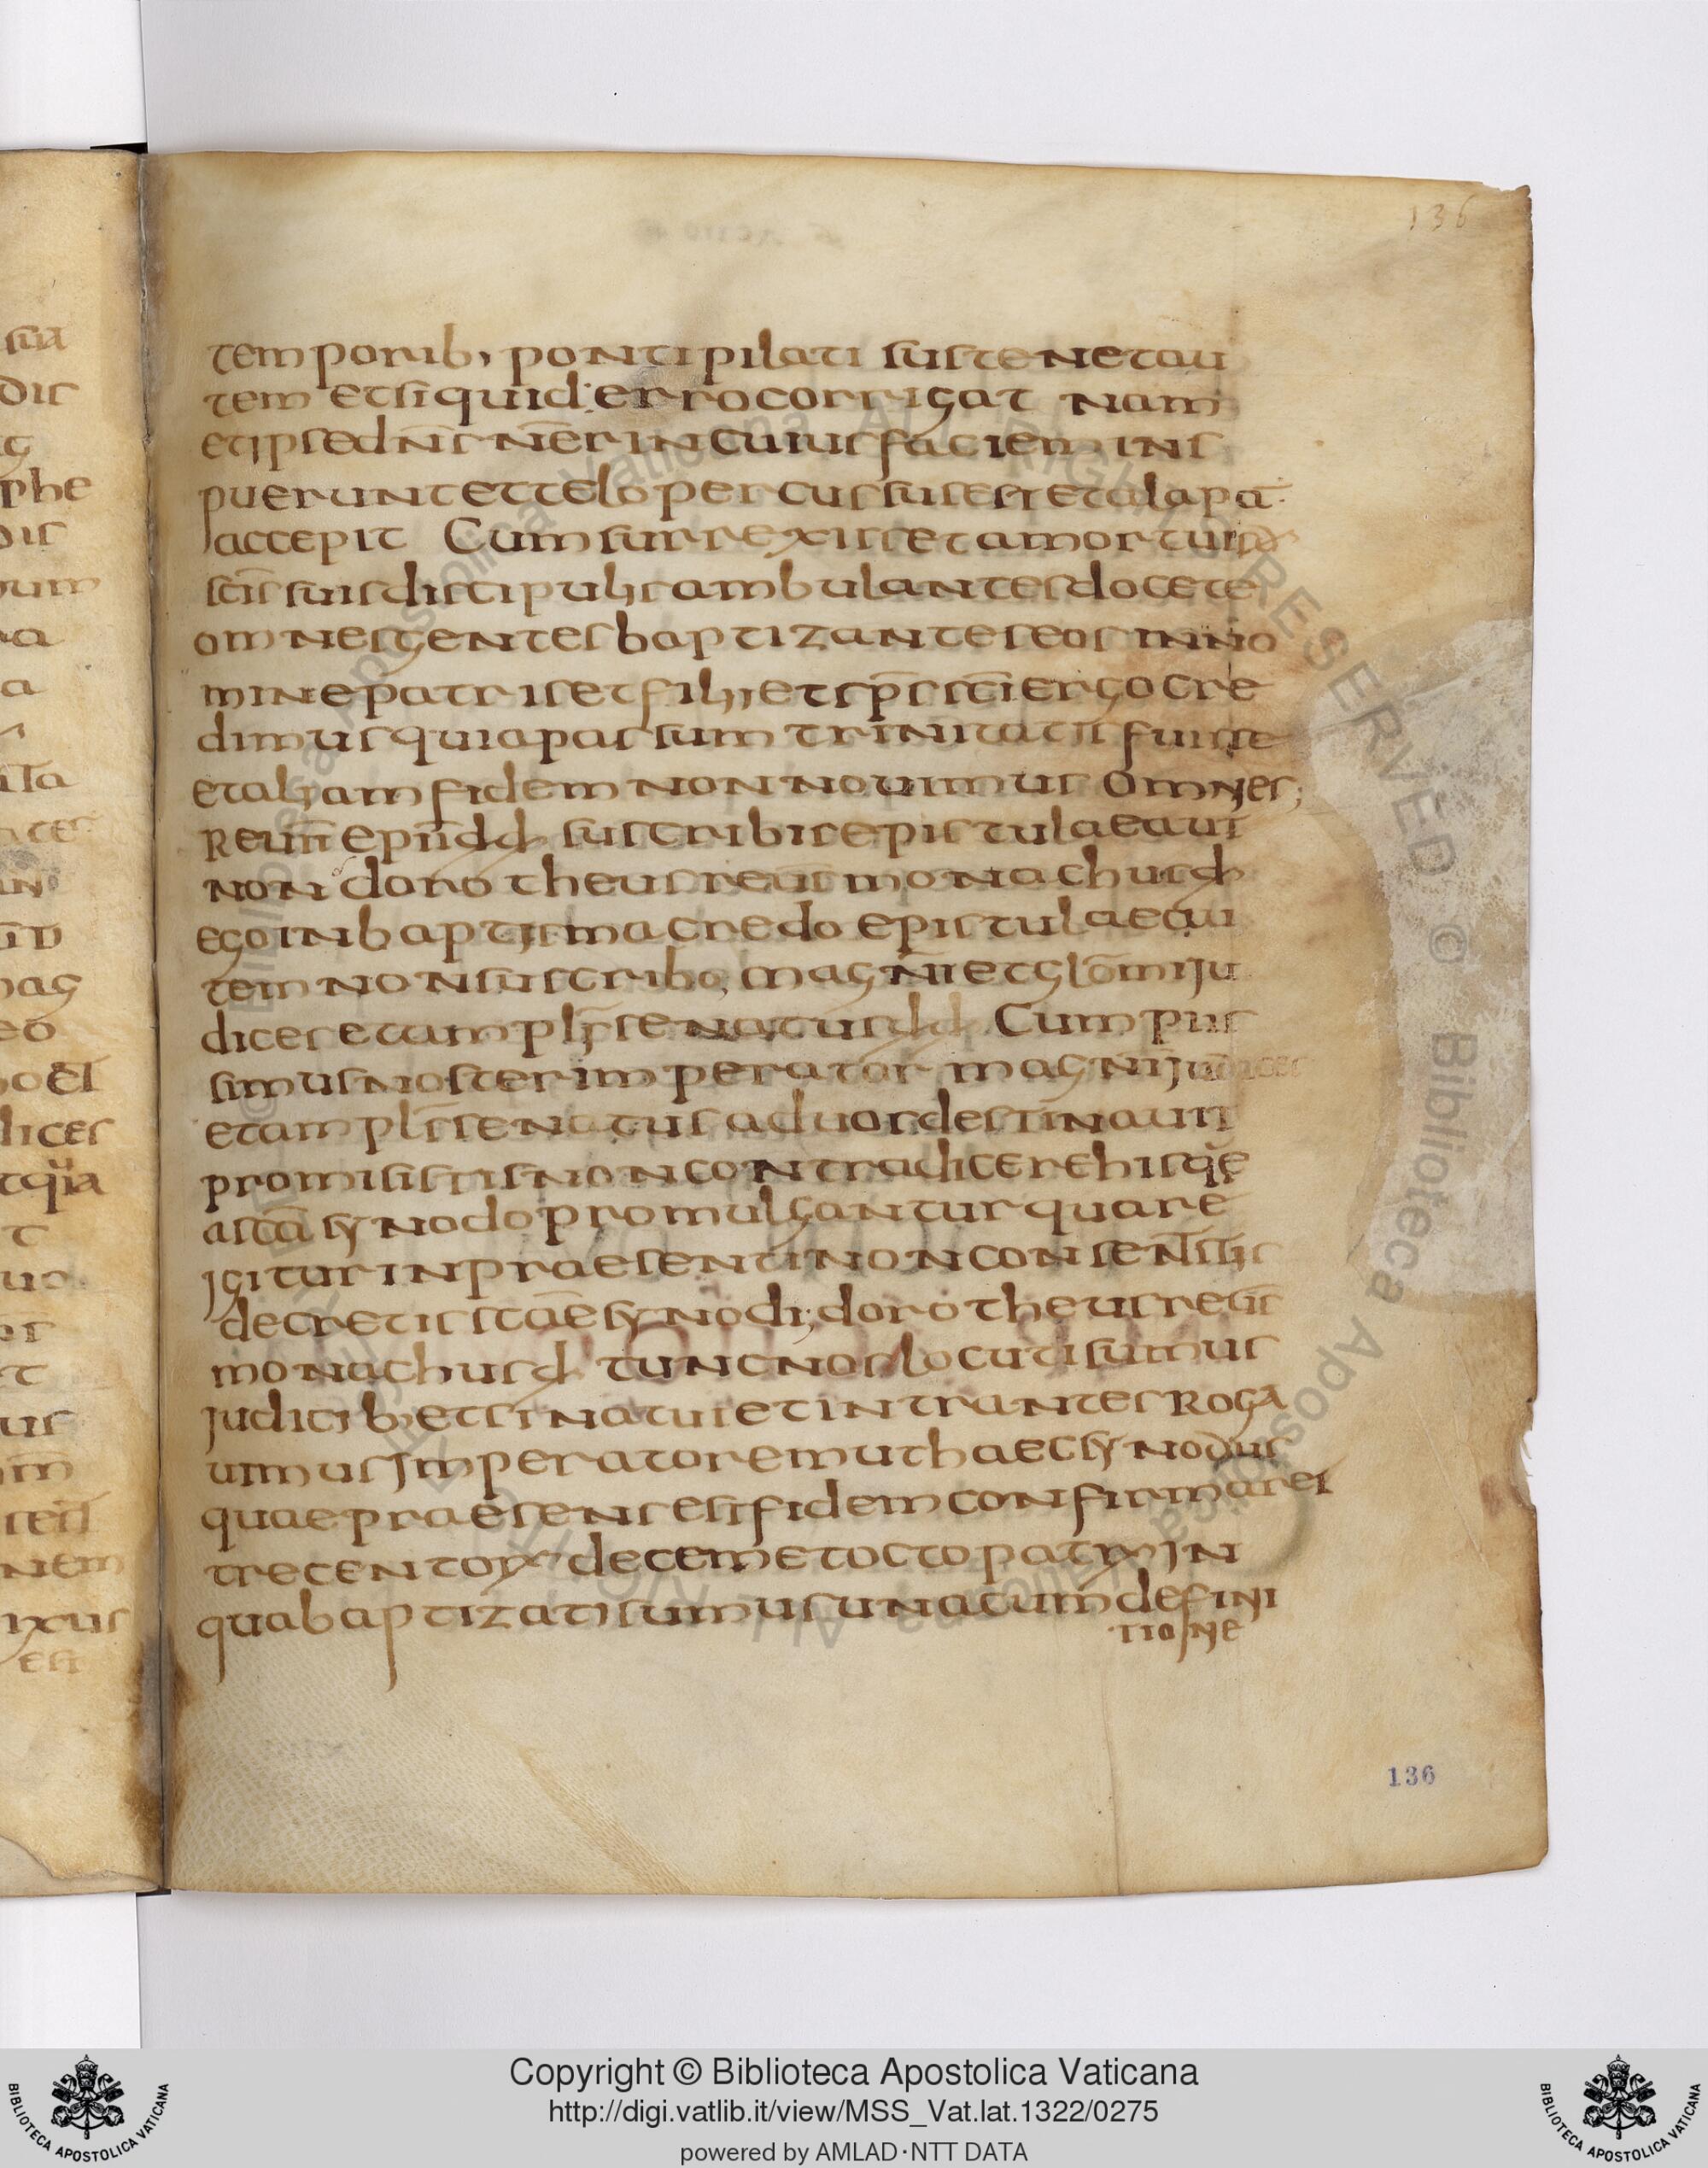 136
temporib, ponti pilati sustenetau
tem etsi quid erro corrigat nam
et ipse dn̄s nēr in cuius faciem ins
puerunt et telo percussus est et alapā
accepit Cum surrexisset a mortuis
sc̄is suis discipulis ambulantes docete
omnes gentes baptizantes eos in no
mine patris et filii et sp̄s sc̄i ergo cre
dimus quia passum trinitatis fuisse
et aliam fidem non novimus Omnes;
Reun̄ epīi dd suscribis epistulae aut
non dorotheus reūs monachus d
ego in baptisma credo epistulae au
tem non suscribo, magn̄i et glōm iu
dices et ampl̄s senatus dd Cum piis
simus noster imperator magn̄i iudices
et ampl̄s senatus ad vos destinavit
promisistis non contradicere his q̄e
a sc̄a synodo promulgantur quare
igitur in praesenti non consentitis
decretis sc̄ae synodi; dorotheus reūs
monachus d tunc nos locuti sumus
iudicib; et sinatui et intrantes Roga
vimus imperatorem ut haec synodus
quae praesens est fidem confirmaret
trecentoꝝ decem et octo patꝝ in
qua baptizati sumus una cum defini
tione
136
sua
dis
phe
dis
sum
ra
a
dices
t
uo
t
us
nem
est
Copyright © Biblioteca Apostolica Vaticana
http://digi.vatlib.it/view/MSS_Vat.lat.1322/0275
powered by AMLAD·NTT DATA
BIBLIOTECA APOSTOLICA VATICANA
BIBLIOTECA APOSTOLICA VATICANA